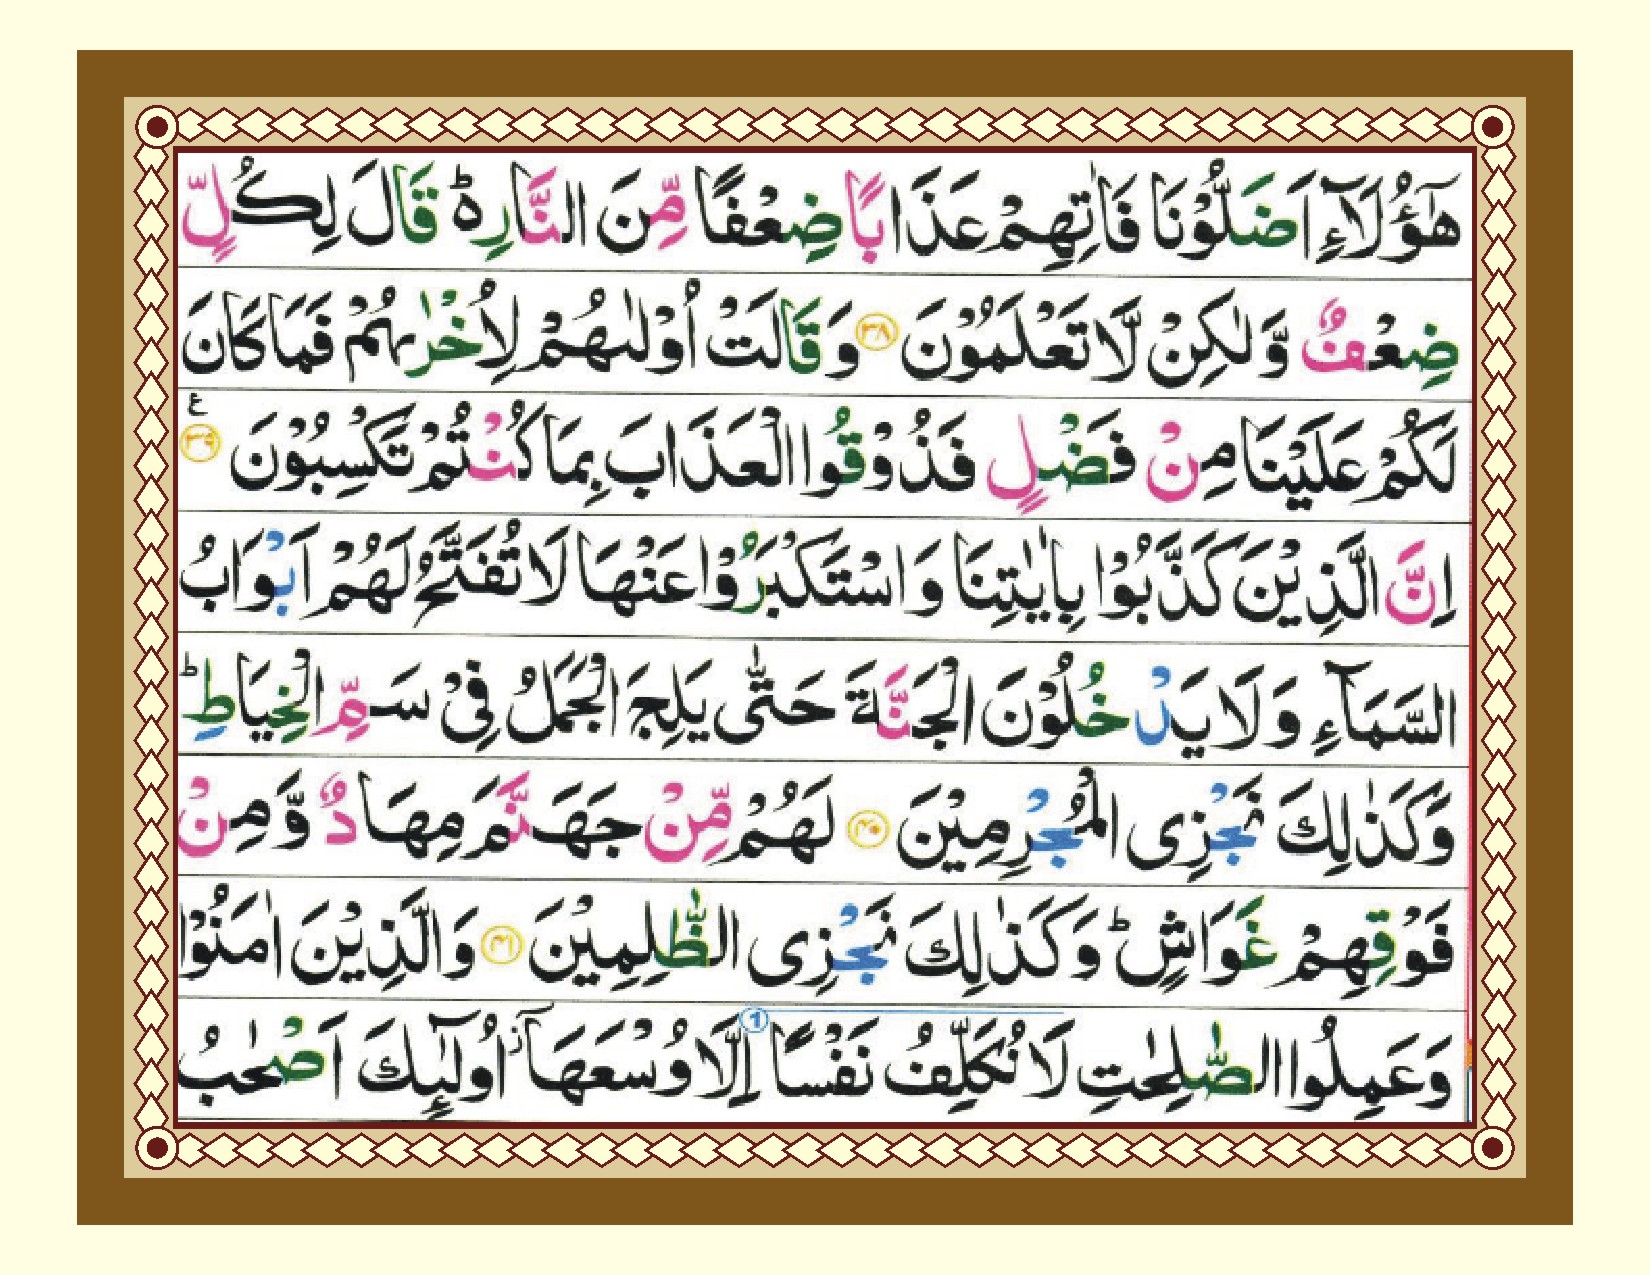 هٰۤؤُلَآءِ اَضَلُّوْنَا فَاٰتِهِمْ عَذَابًا ضِعْفًا مِّنَ النَّارِ ؕ قَالَ لِكُلٍّ
ضِعْفٌ وَّلٰكِنْ لَّا تَعْلَمُوْنَ ﴿۳۸﴾ وَقَالَتْ اُوْلٰىهُمْ لِاُخْرٰىهُمْ فَمَا كَانَ
لَكُمْ عَلَيْنَا مِنْ فَضْلٍ فَذُوْقُوا الْعَذَابَ بِمَا كُنْتُمْ تَكْسِبُوْنَ ﴿۳۹﴾ ع
اِنَّ الَّذِيْنَ كَذَّبُوْا بِاٰيٰتِنَا وَاسْتَكْبَرُوْا عَنْهَا لَا تُفَتَّحُ لَهُمْ اَبْوَابُ
السَّمَآءِ وَلَا يَدْخُلُوْنَ الْجَنَّةَ حَتّٰى يَلِجَ الْجَمَلُ فِيْ سَمِّ الْخِيَاطِ ؕ
وَكَذٰلِكَ نَجْزِى الْمُجْرِمِيْنَ ﴿۴۰﴾ لَهُمْ مِّنْ جَهَنَّمَ مِهَادٌ وَّمِنْ
فَوْقِهِمْ غَوَاشٍ ؕ وَكَذٰلِكَ نَجْزِى الظّٰلِمِيْنَ ﴿۴۱﴾ وَالَّذِيْنَ اٰمَنُوْا
وَعَمِلُوا الصّٰلِحٰتِ لَا نُكَلِّفُ نَفْسًا 1 اِلَّا وُسْعَهَاۤ ز اُولٰٓئِكَ اَصْحٰبُ